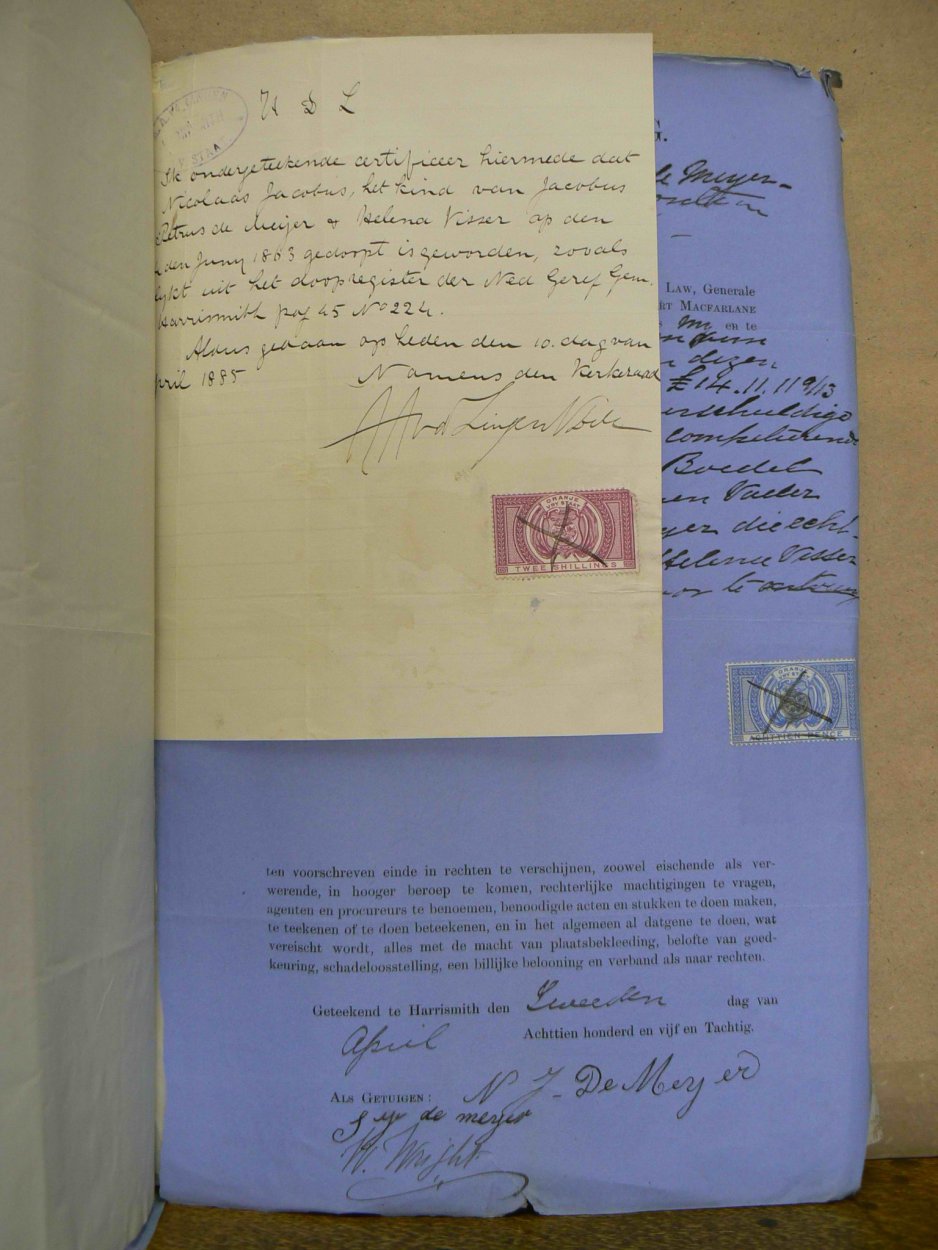 H D L
Ik ondergeteekende certificeer hiermede dat
Nicolaas Jacobus, het kind van Jacobus
Petrus de Meijer & Helena Visser op den
den Juny 1863 gedoopt is geworden, zooals
lykt uit het doopregister der Ned Geref Gem.
Harrismith pag 45 No 224.
Aldus gedaan op heden den 10. dag van
pril 1885
Namens den Kerkeraad
ORANJE
VRY STAAT
TWEE SHILLINGS
G.
de Meyer-
Law, Generale
rt Macfarlane
en te
dezen
£14.11.11 9/13
erschuldigd
competerende
Boedel
en Vader
yer die echt-
Helena Visser
or te
ORANJE
VRY STAAT
ACHTTIEN PENCE
ten voorschreven einde in rechten te verschijnen, zoowel eischende als ver-
werende, in hooger beroep te komen, rechterlijke machtigingen te vragen,
agenten en procureurs te benoemen, benoodigde acten en stukken te doen maken,
te teekenen of te doen beteekenen, en in het algemeen al datgene te doen, wat
vereischt wordt, alles met de macht van plaatsbekleeding, belofte van goed-
keuring, schadeloosstelling, een billijke belooning en verband als naar rechten.
Geteekend te Harrismith den Tweeden dag van
April Achttien honderd en vijf en Tachtig.
Als Getuigen: N J. De Meyer
de meyer
W. Wright